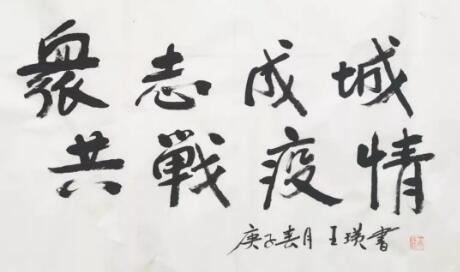 眾志成城
共戰疫情
庚子春月 王瑛書